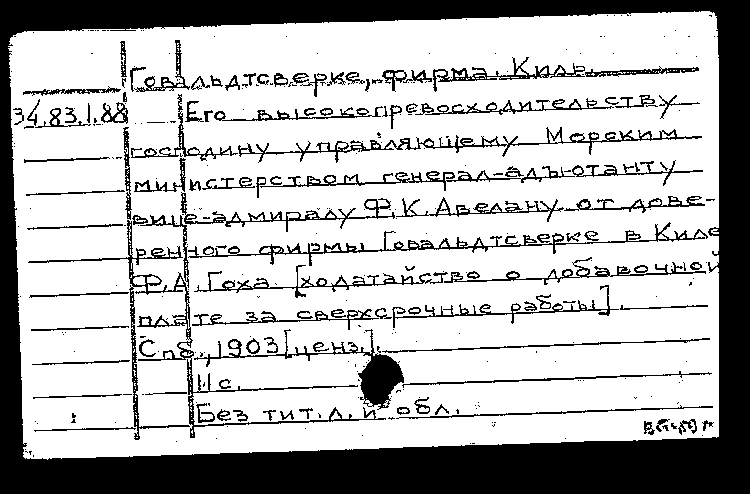 Говальдтсверке, фирма. Киль.
34.83.1.88 Его высокопревосходительству
господину управляющему Морским
министерством генерал-адъютанту
вице-адмиралу Ф.К.Авелану от дове-
ренного фирмы Говальдтсверке в Киле
Ф.А.Гоха. [ходатайство о добавочной
плате за сверхсрочные работы].
Спб., 1903 [ценз.].
11 с.
Без тит.л. и обл.